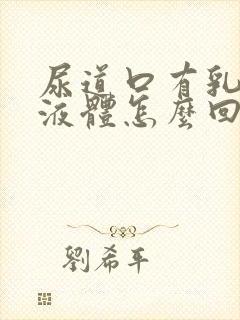 尿道口有乳
液體怎麼回
劉希平